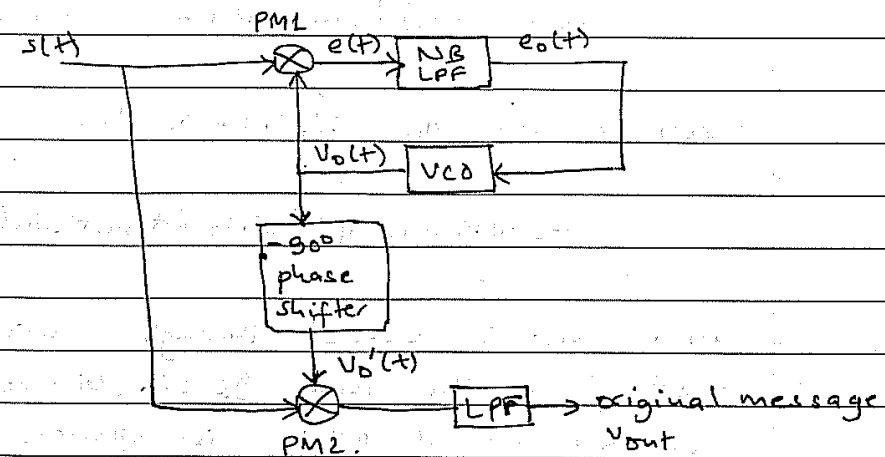 PM1
s(t)
e(t)
NB
LPF
e₀(t)
V₀(t)
VCO
-90°
phase
shifter
V₀'(t)
LPF
original message
Vout
PM2.